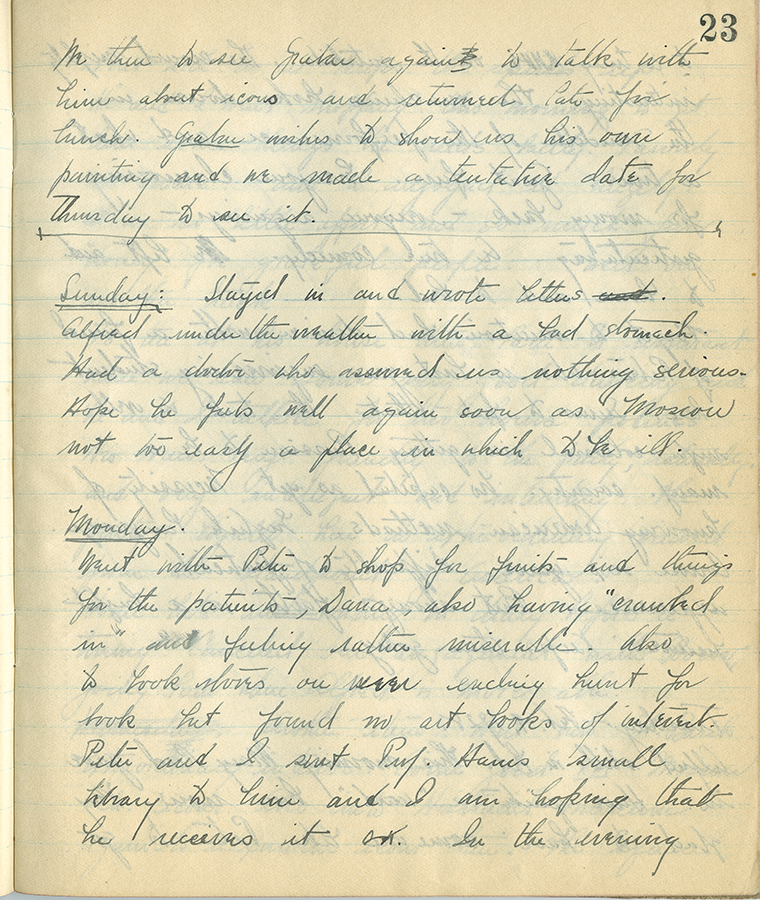 23
We then to see Grabar again to talk with
him about icons and returned late for
lunch. Grabar wishes to show us his own
painting and we made a tentative date for
Thursday to see it.
Sunday: Stayed in and wrote letters and.
Alfred under the weather with a bad stomach.
Had a doctor who assured us nothing serious.
Hope he feels well again soon as Moscow
not too easy a place in which to be ill.
Monday.
Went with Petr to shop for fruits and things
for the patients, Dana, also having "crawled
in" and feeling rather miserable. Also
to book stores on never ending hunt for
book but found no art books of interest.
Petr and I sent Prof. Hams small
library to him and I am hoping that
he receives it ok. In the evening